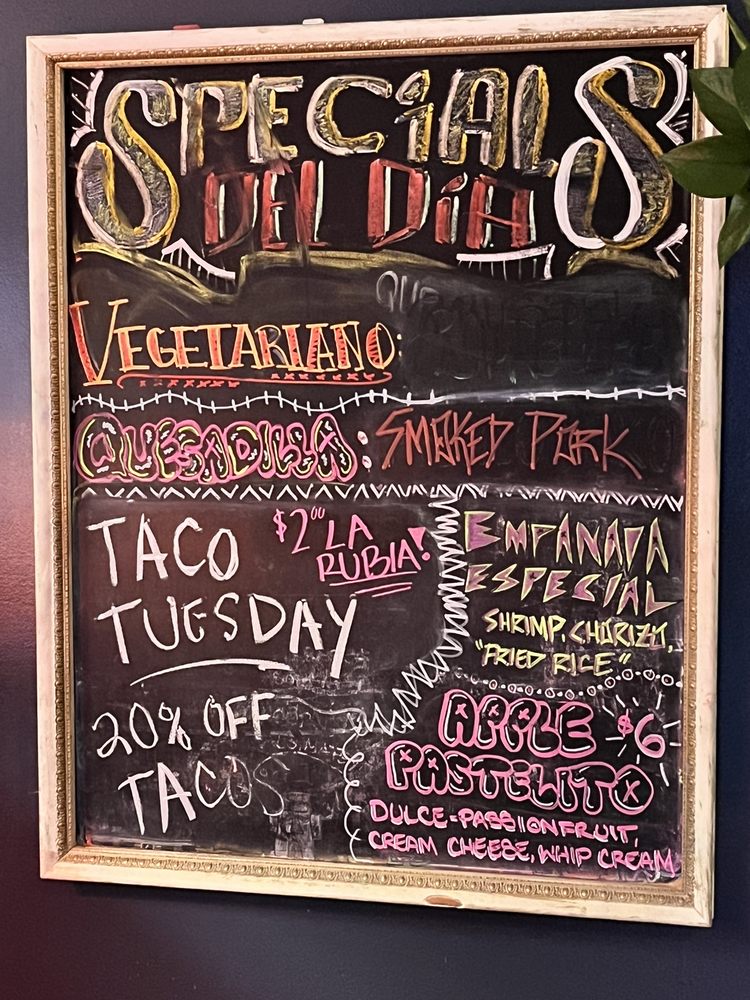 SPECIALS
DEL DíA
VEGETARIANO:
QUESADILLA: SMOKED PORK
TACO
TUESDAY
$2.00 LA
RUBIA!
20% OFF
TACOS
EMPANADA
ESPECIAL
SHRIMP, CHORIZO,
"FRIED RICE"
APPLE $6
PASTELITO
DULCE-PASSIONFRUIT,
CREAM CHEESE, WHIP CREAM